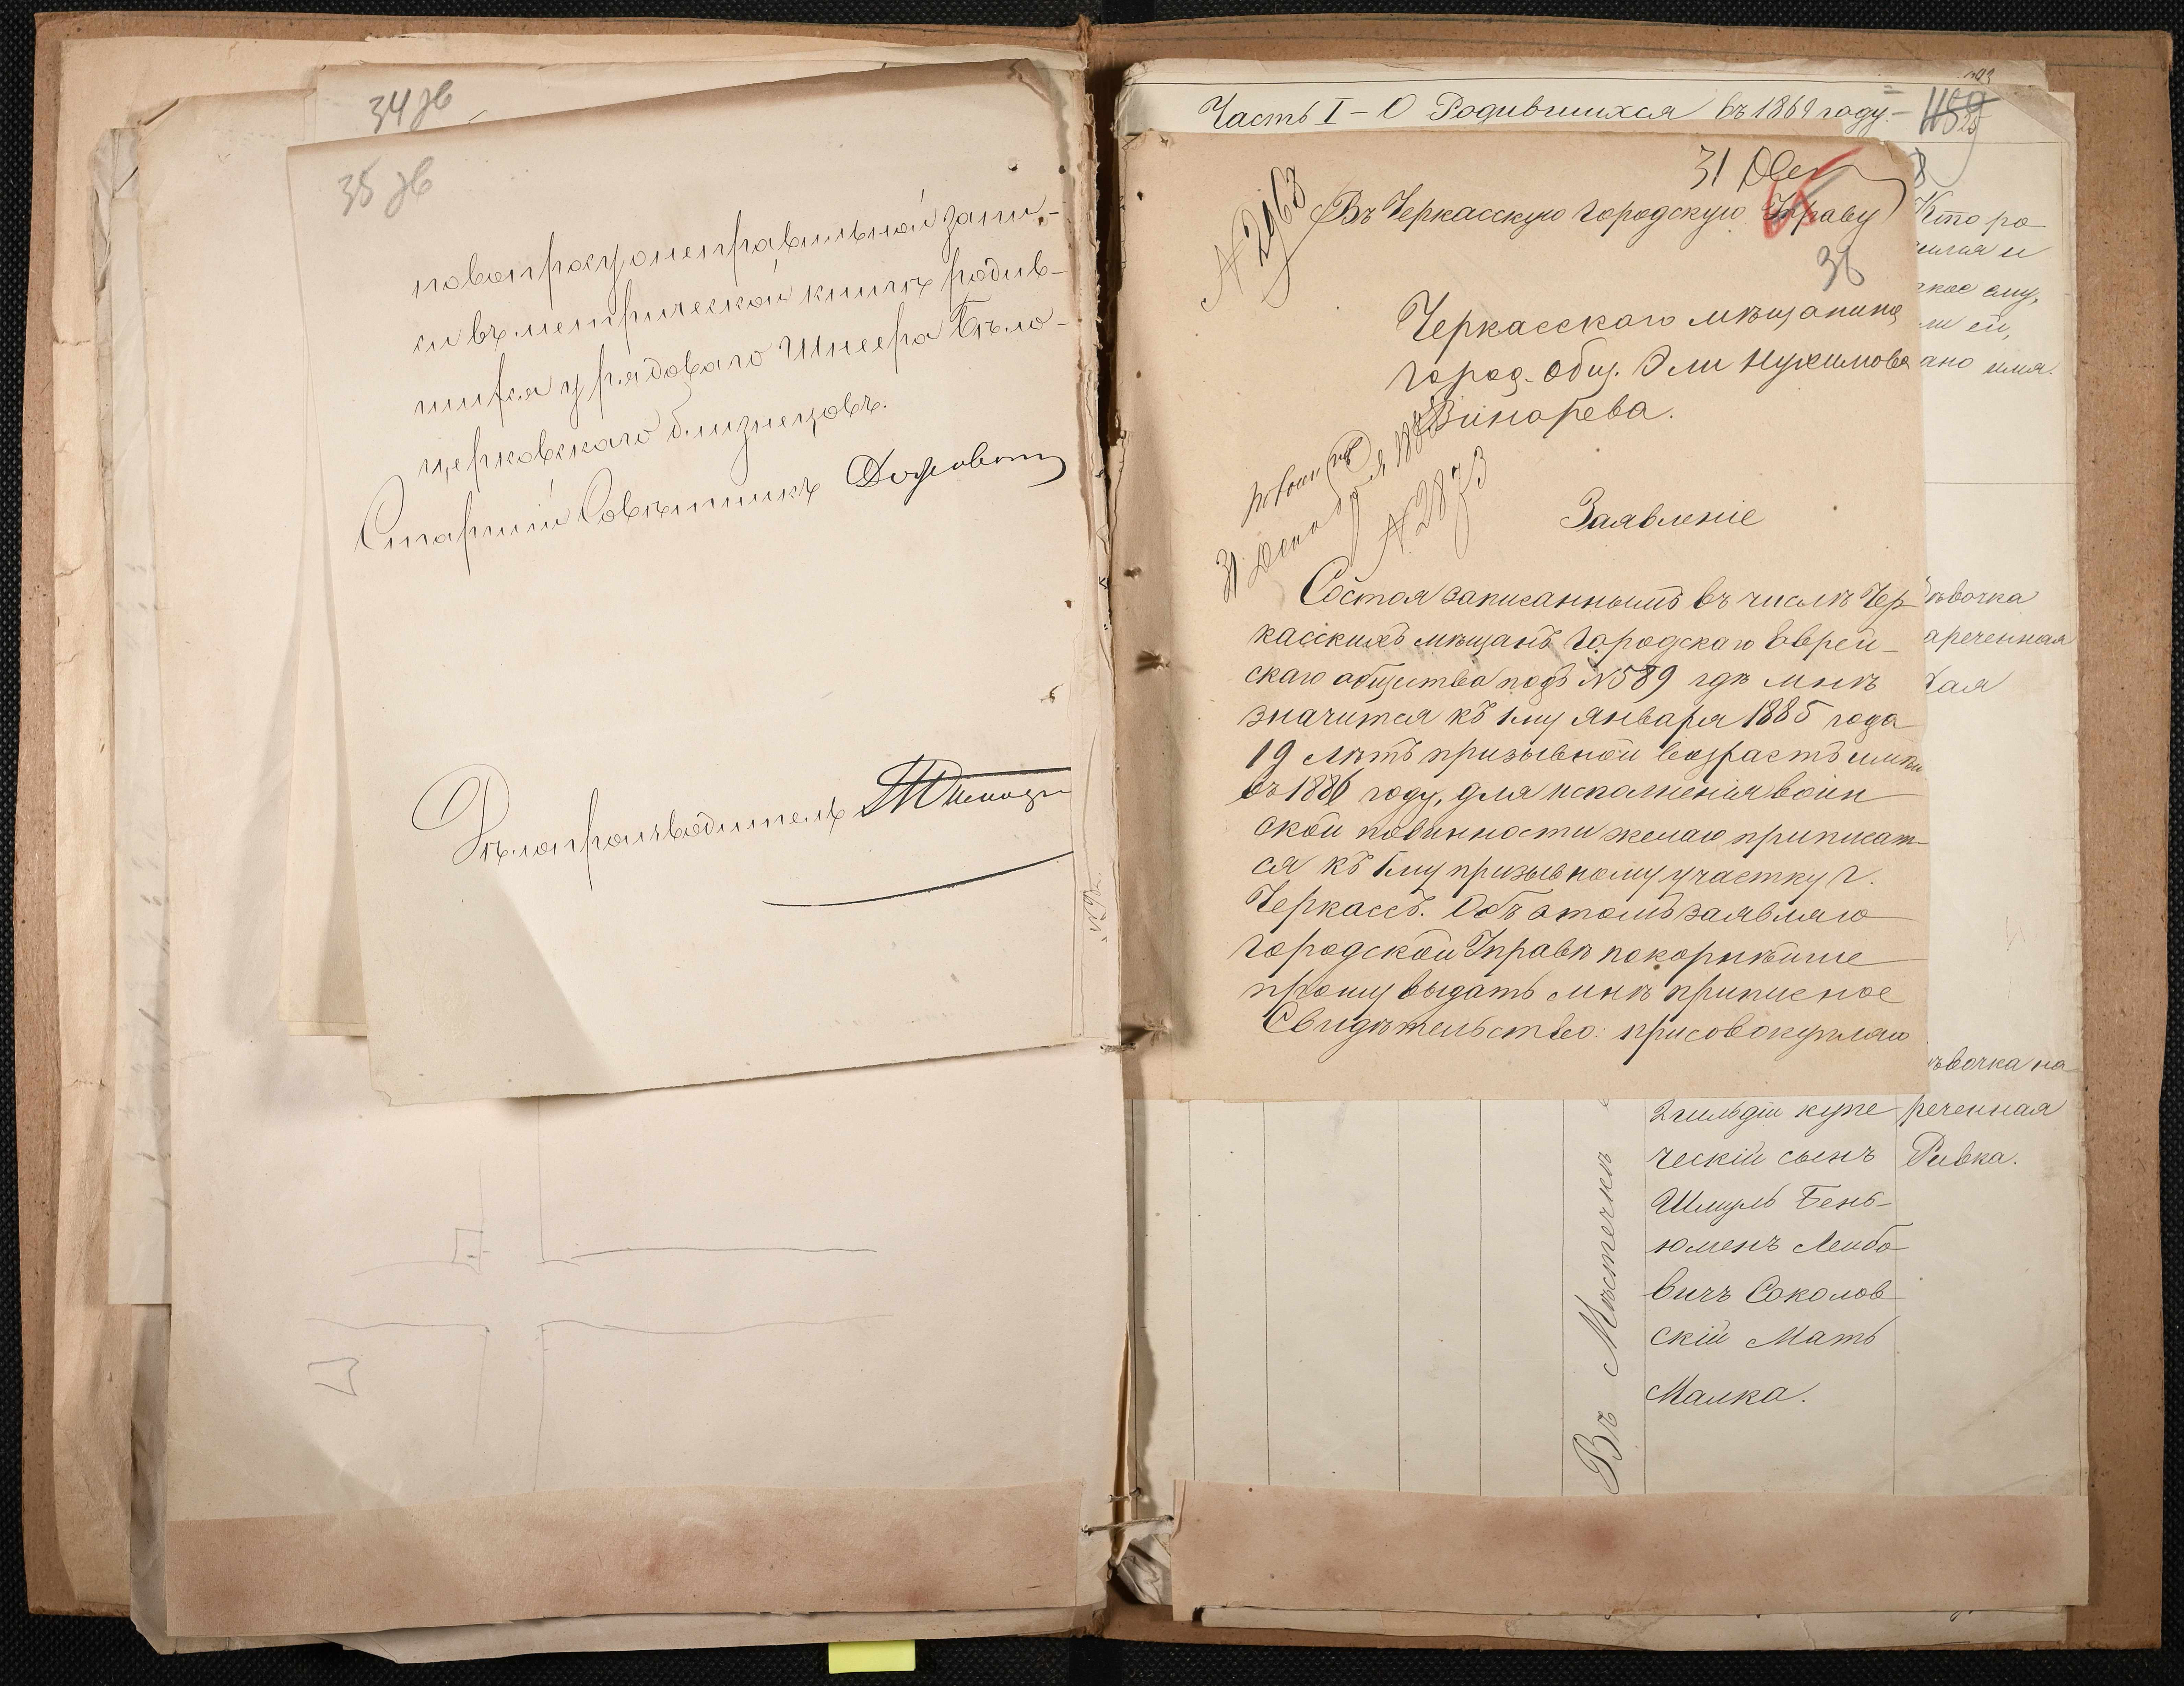 34 зв
35 зв
по вопросу о неправильной запи-
си въ метрической книгѣ родив-
шихся у рядоваго Шнеера Бѣло-
церковскаго близнецовъ.
Старшій Совѣтникъ
Дѣлопроизводитель
Часть I – О Родившихся въ 1869 году. –
31 Дек
№ 2963
Въ Черкасскую Городскую Управу
36
Черкасскаго мѣщанина
город. общ. Эли Нухимова
Винарева.
31 Декабря
№ 2873
Заявленіе
Состоя записаннымъ въ числѣ Чер-
касскихъ мѣщанъ Городскаго Еврей-
скаго общества подъ №589 гдѣ мнѣ
значится къ 1му Января 1885 года
19 лѣтъ призывной возрастъ имѣю
въ 1886 году, для исполненія воин
ской повинности желаю приписат-
ся къ 1му призывному участку г.
Черкассъ. Объ этомъ заявляю
Городской Управѣ покорнѣйше
прошу выдать мнѣ приписное
Свидѣтельство: присовокупляю
Кто ро
дился и
какое ему,
или ей,
дано имя.
дѣвочка
нареченная
дѣвочка на
реченная
Ривка.
Въ Мѣстечкѣ
2 гильдіи купе
ческій сынъ
Шмуль Бень-
юменъ Лейбо
вичъ Соколов
скій Мать
Малка.